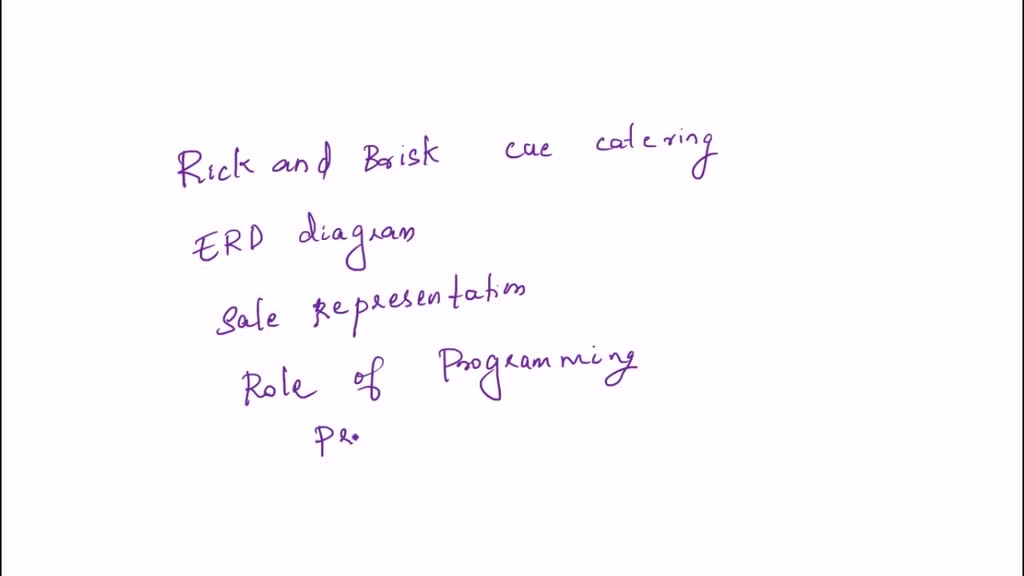 Rick and Brisk cae catering
ERD diagram
Sale Representation
Role of Programming
Pr